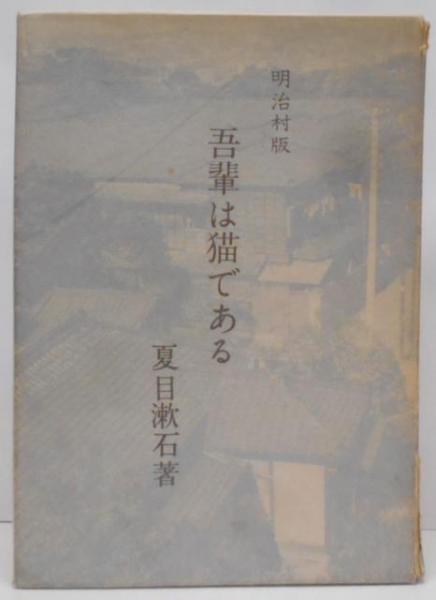 明治村版
吾輩は猫である
夏目漱石著